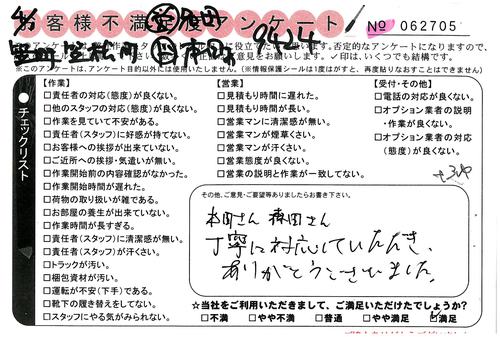 お客様不満足度アンケート
No 062705
9424
※このアンケートは、アンケート目的以外には使用いたしません。（※情報保護シールは1度がすと、再度貼りなおすことはできません）
チェックリスト
【作業】
□責任者の対応（態度）が良くない。
□他のスタッフの対応（態度）が良くない。
□作業を見ていて不安がある。
□責任者（スタッフ）に好感が持てない。
□お客様への挨拶が出来ていない。
□ご近所への挨拶・気遣いが無い。
□作業開始前の内容確認がなかった。
□作業開始時間が遅れた。
□荷物の取り扱いが雑である。
□お部屋の養生が出来ていない。
□作業時間が長すぎる。
□責任者（スタッフ）に清潔感が無い。
□責任者（スタッフ）が汗くさい。
□トラックが汚い。
□梱包資材が汚い。
□運転が不安（下手）である。
□靴下の履き替えをしてない。
□スタッフにやる気がみられない。
【営業】
□見積もり時間に遅れた。
□見積もり時間が長い。
□営業マンに清潔感が無い。
□営業マンが煙草くさい。
□営業マンが汗くさい。
□営業態度が良くない。
□営業の説明と作業が一致してない。
【受付・その他】
□電話の対応が良くない。
□オプション業者の説明・作業が良くない。
□オプション業者の対応（態度）が良くない。
その他、ご意見・ご要望等ありましたらお書き下さい。
本田さん 森田さん
丁寧に対応していただき、
ありがとうございました。
☆当社をご利用いただきまして、ご満足いただけたでしょうか？
□不満 □やや不満 □普通 □やや満足 ☑満足